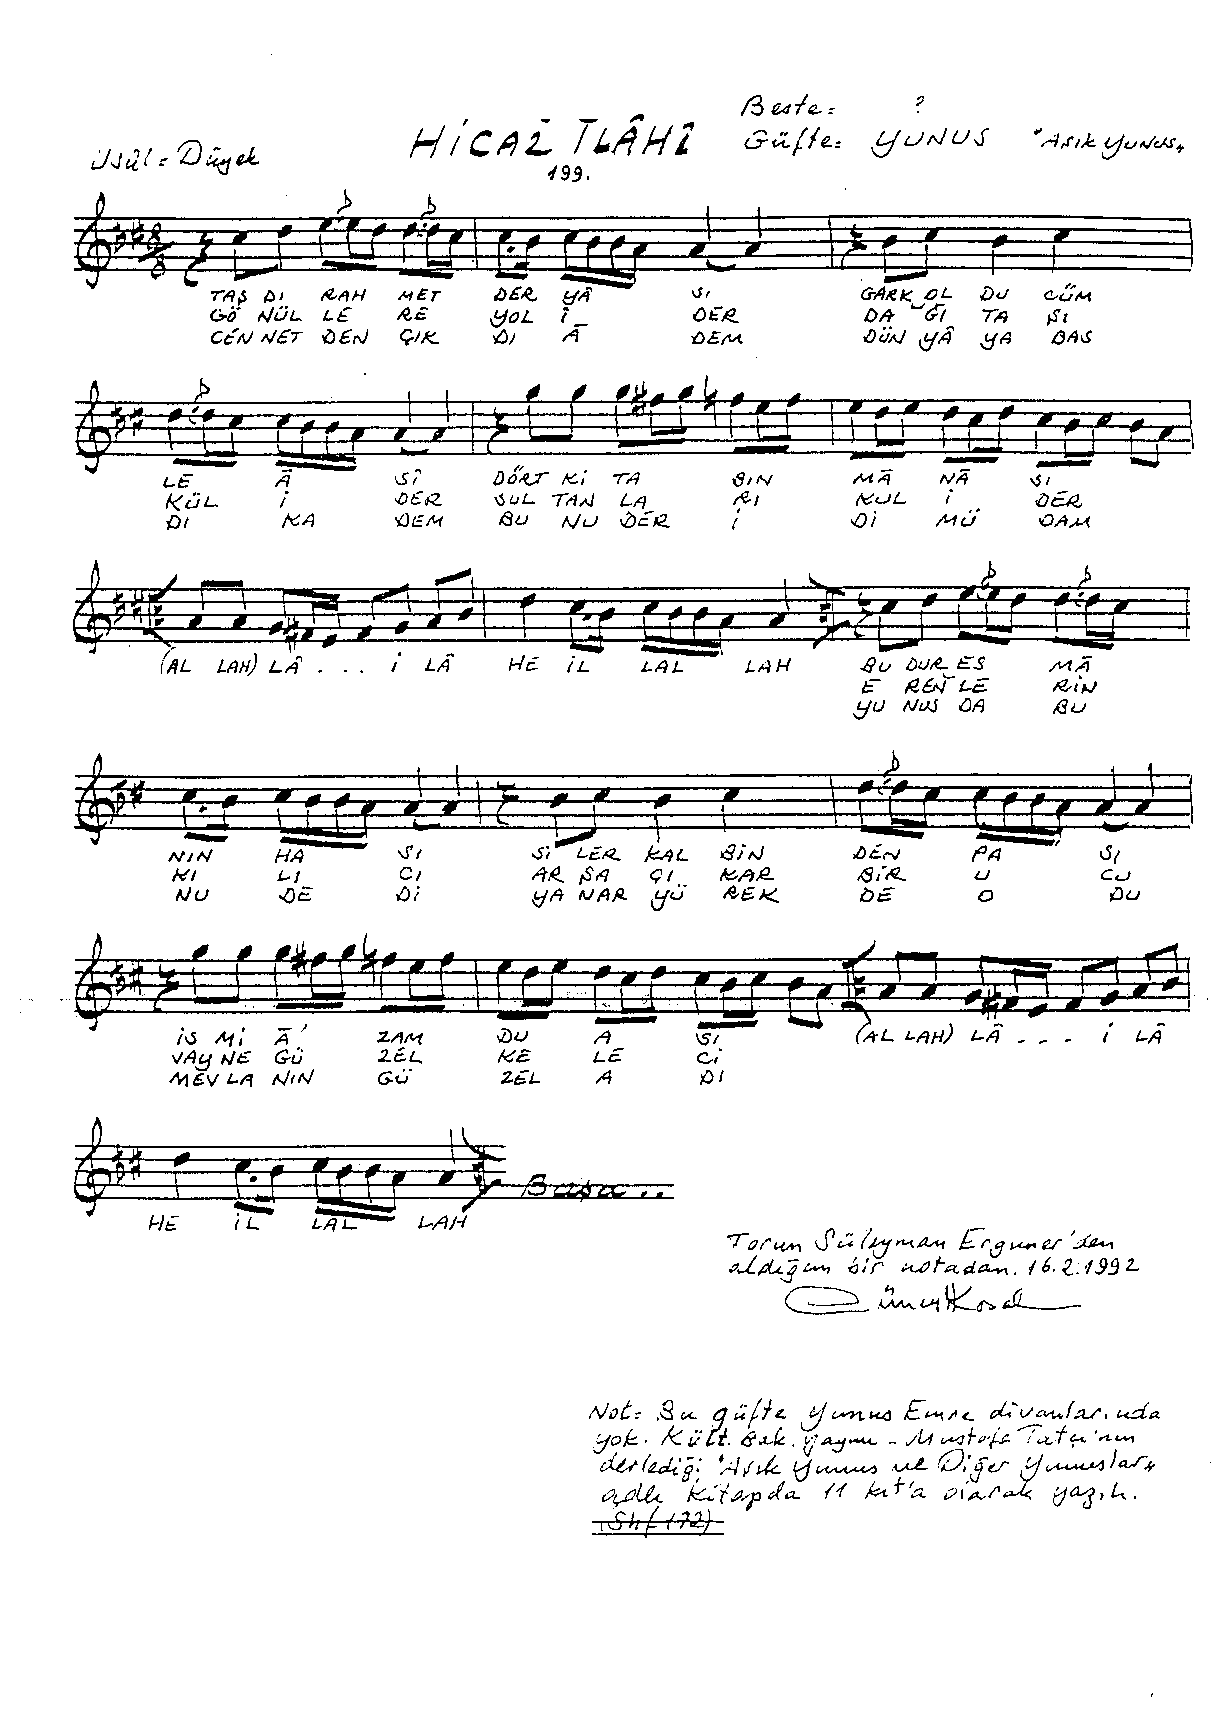 Beste = ?
HİCAZ İLÂHÎ
Güfte = YUNUS "AŞIK YUNUS"
Usûl = Düyek
199.
8
8
TAŞ DI RAH MET DER YÂ SI GARK OL DU CÜM
GÖ NÜL LE RE YOL İ DER DA ĞI TA ŞI
CEN NET DEN ÇIK DI Â DEM DÜN YÂ YA BAS
LE Â SÎ DÖRT Kİ TA BIN MÂ NÂ SI
KÜL İ DER SUL TAN LA RI KUL İ DER
DI KA DEM BU NU DER İ Dİ MÜ DAM
(AL LAH) LÂ . . . İ LÂ HE İL LAL LAH BU DUR ES MÂ
E REN LE RİN
YU NUS DA BU
NIN HA SI Sİ LER KAL BİN DEN PA SI
KI LI CI AR ŞA ÇI KAR BİR U CU
NU DE Dİ YA NAR YÜ REK DE O DU
İS Mİ Â' ZAM DU A SI (AL LAH) LÂ . . . İ LÂ
VAY NE GÜ ZEL KE LE Cİ
MEV LA NIN GÜ ZEL A DI
HE İL LAL LAH
Başa . .
Torun Süleyman Erguner'den
aldığım bir notadan. 16.2.1992
Not = Bu güfte Yunus Emre divanlarında
yok. Kült. Bak. yayını - Mustafa Tatçı'nın
derlediği "Aşık Yunus ve Diğer Yunuslar"
adlı kitapda 11 kıt'a olarak yazılı.
(Shf 172)